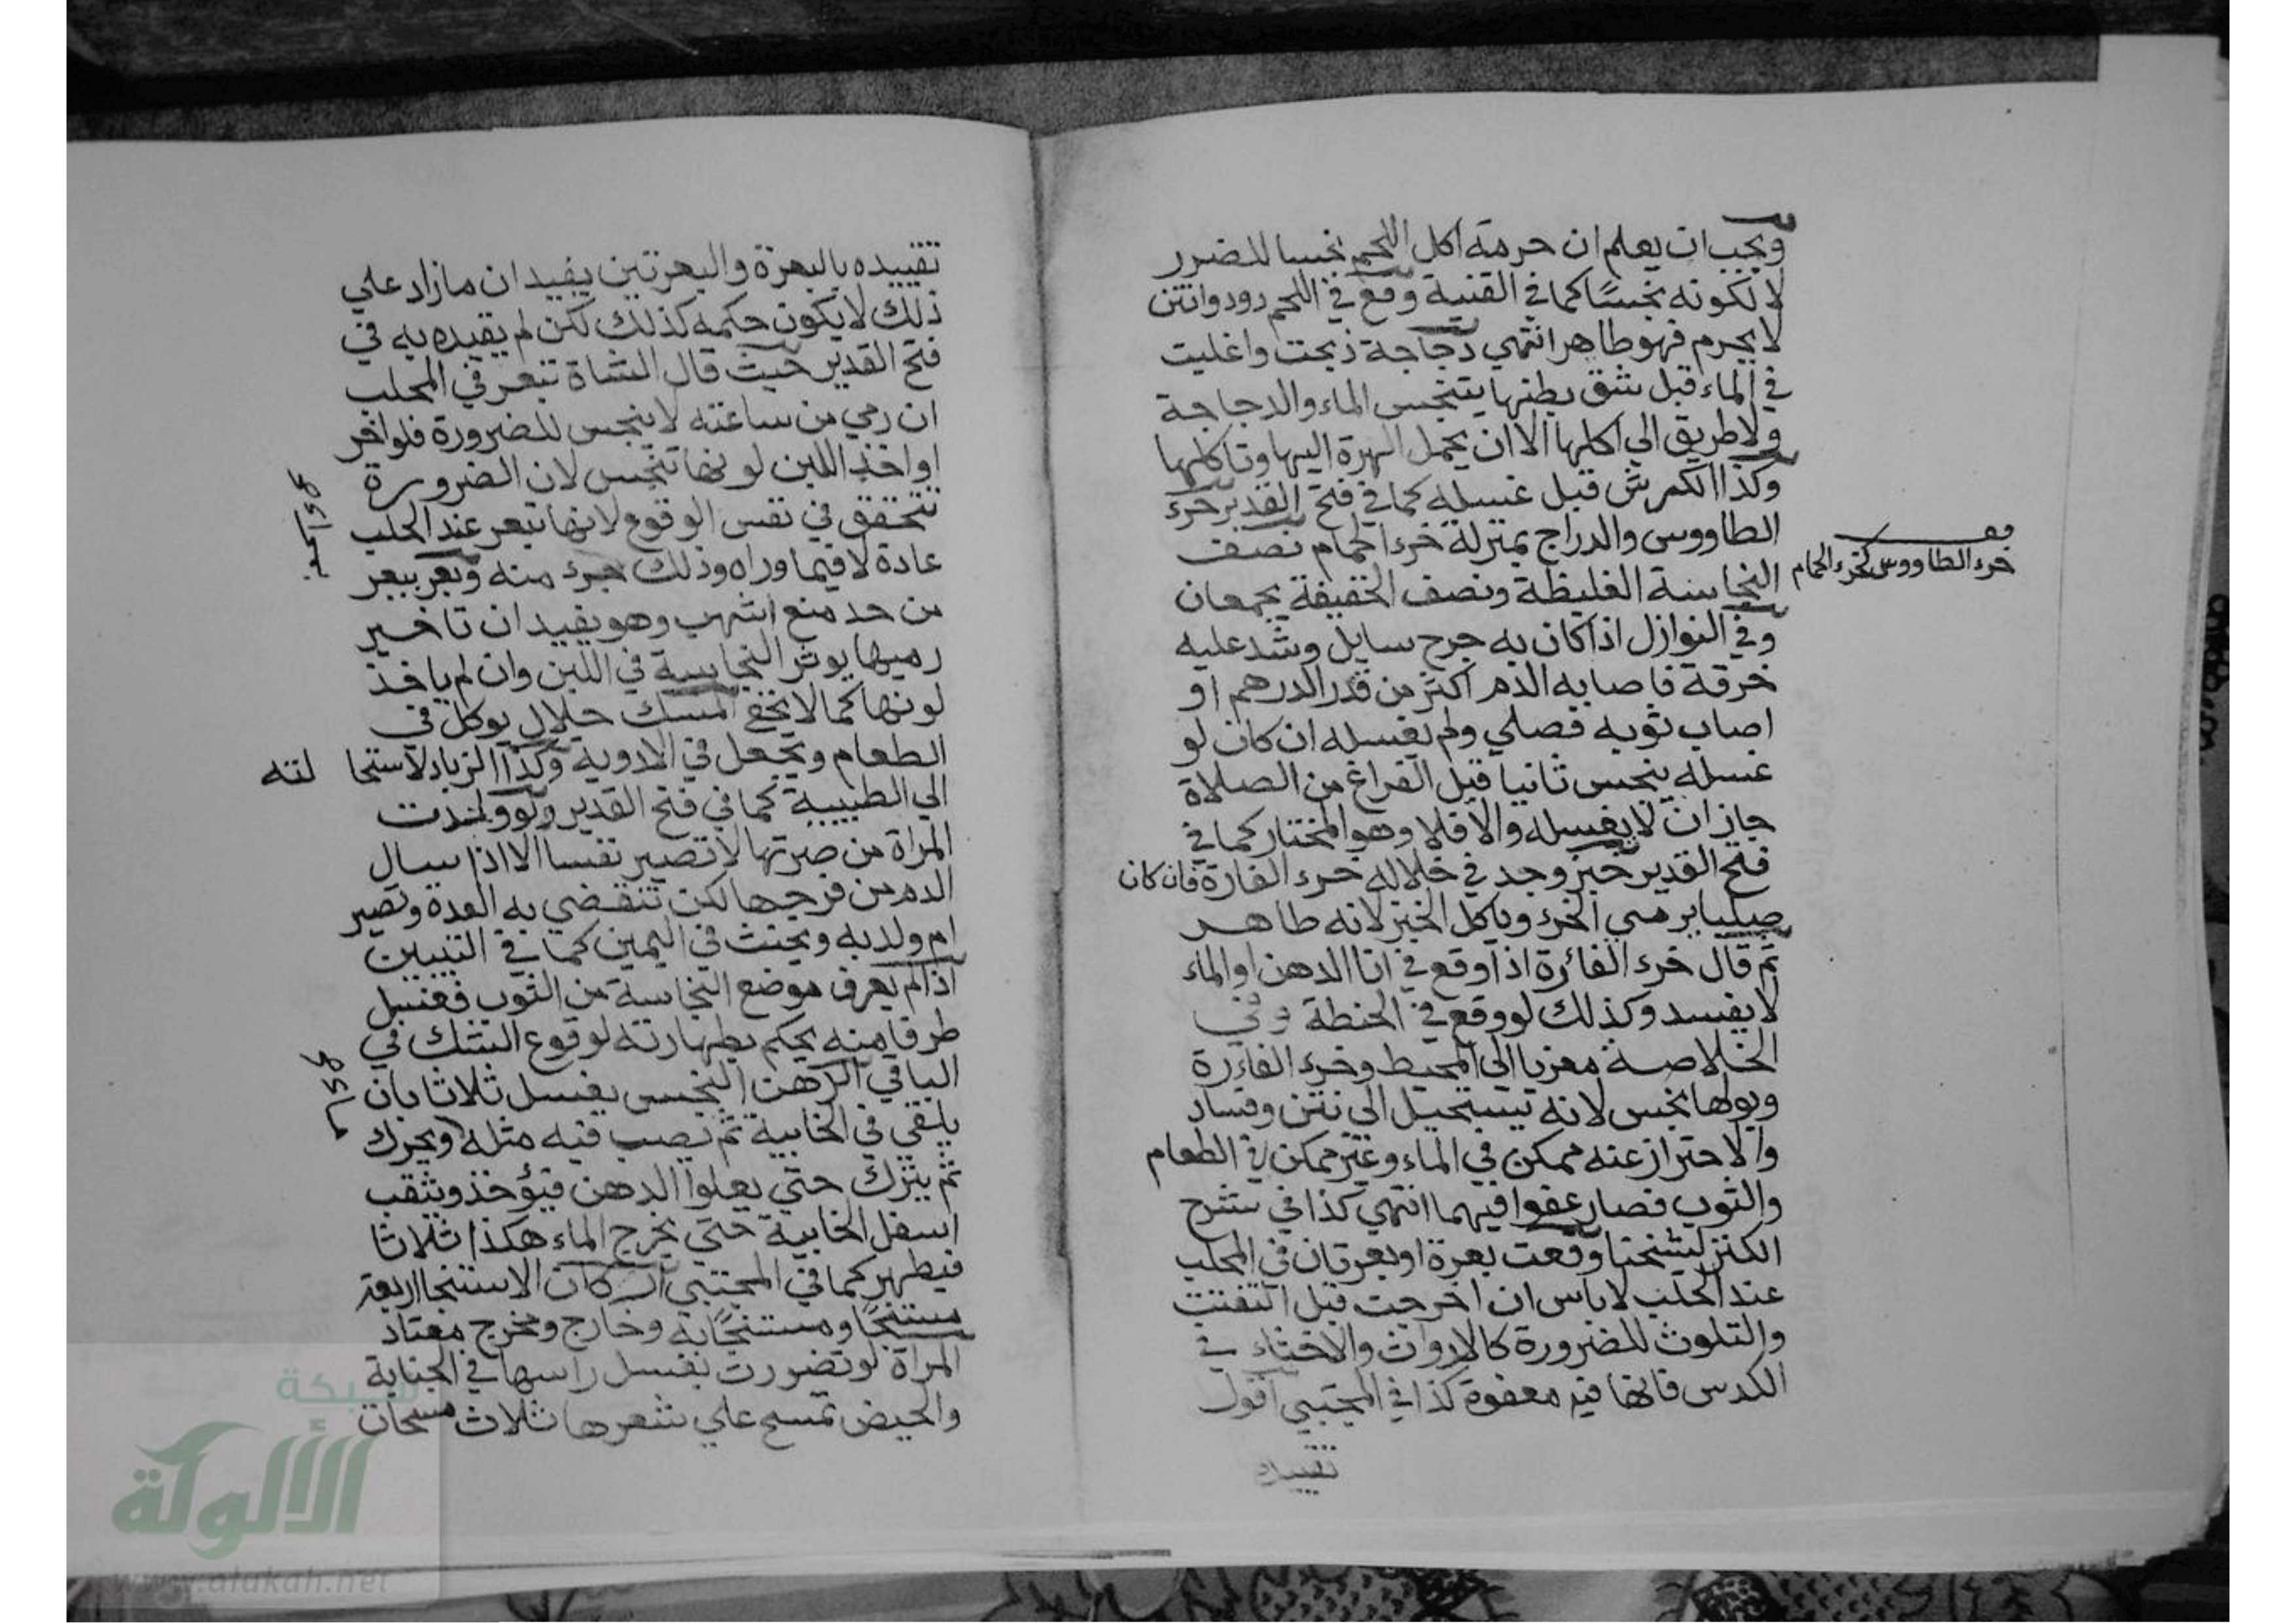 ويجب ان يعلم ان حرمة اكل اللحم نجسا للضرر
لا لكونه نجسًا كما في القنية وقع في اللحم دود وانتن
لا يحرم فهو طاهر انتهي دجاجة ذبحت واغليت
في الماء قبل شق بطنها يتنجس الماء والدجاجة
ولا طريق الي اكلها الا ان يحمل الهرة اليها وتاكلها
وكذا الكرش قبل غسله كما في فتح القدير خرء
الطاووس والدراج بمنزلة خرء الحمام نصف
خرء الطاووس كخرء الحمام
النجاسة الغليظة ونصف الخفيفة يجمعان
وفي النوازل اذا كان به جرح سايل وشد عليه
خرقة فاصابه الدم اكثر من قدر الدرهم او
اصاب ثوبه فصلي ولم يغسله ان كان لو
غسله ينجس ثانيا قبل الفراغ من الصلاة
جاز ان لا يغسله والا فلا وهو المختار كما في
فتح القدير خبز وجد في خلاله خرء الفارة فان كان
صلبا يرمي الخرء وياكل الخبز لانه طاهر
ثم قال خرء الفائرة اذا وقع في انا الدهن او الماء
لا يفسد وكذلك لو وقع في الحنطة وفي
الخلاصة معزيا الي المحيط وخرء الفائرة
وبولها نجس لانه يستحيل الي نتن وفساد
والاحتراز عنه ممكن في الماء وغير ممكن في الطعام
والثوب فصار عفوا فيهما انتهي كذا في شرح
الكنز لشيخنا وقعت بعرة او بعرتان في المحلب
عند الحلب لا باس ان اخرجت قبل التفتت
والتلوث للضرورة كالارواث والاخثاء في
الكدس فانها فيه معفوة كذا في المجتبي اقول
تقييده
تقييده بالبعرة والبعرتين يفيد ان ما زاد علي
ذلك لا يكون حكمه كذلك لكن لم يقيده به في
فتح القدير حيث قال الشاة تبعر في المحلب
ان رمي من ساعته لا ينجس للضرورة فلو اخر
او اخذ اللبن لونها تنجس لان الضرورة
تتحقق في نفس الوقوع لانها تبعر عند الحلب
عادة لا فيما وراه وذلك خرء منه وبعر يبعر
من حد منع انتهي وهو يفيد ان تاخير
رميها يوثر النجاسة في اللبن وان لم ياخذ
لونها كما لا يخفي المسك حلال يوكل في
الطعام ويجعل في الادوية وكذا الزباد لاستحا لته
الي الطيبية كما في فتح القدير ولو ولدت
المراة من صرتها لا تصير نفسا الا اذا سال
الدم من فرجها لكن تنقضي به العدة وتصير
ام ولد به ويحنث في اليمين كما في التبيين
اذا لم يعرف موضع النجاسة من الثوب فغسل
طرفا منه يحكم بطهارته لوقوع الشك في
الباقي الدهن النجس يغسل ثلاثا بان
يلقي في الخابية ثم يصب فيه مثله ويحرك
ثم يترك حتي يعلوا الدهن فيؤخذ ويثقب
اسفل الخابية حتي يخرج الماء هكذا ثلاثا
فيطهر كما في المجتبي اركان الاستنجا اربعة
مستنجًا ومستنجًا به وخارج ومخرج معتاد
المراة لو تضورت بغسل راسها في الجنابة
والحيض تمسح علي شعرها ثلاث مسحات
شبكة
الألوكة
www.alukah.net